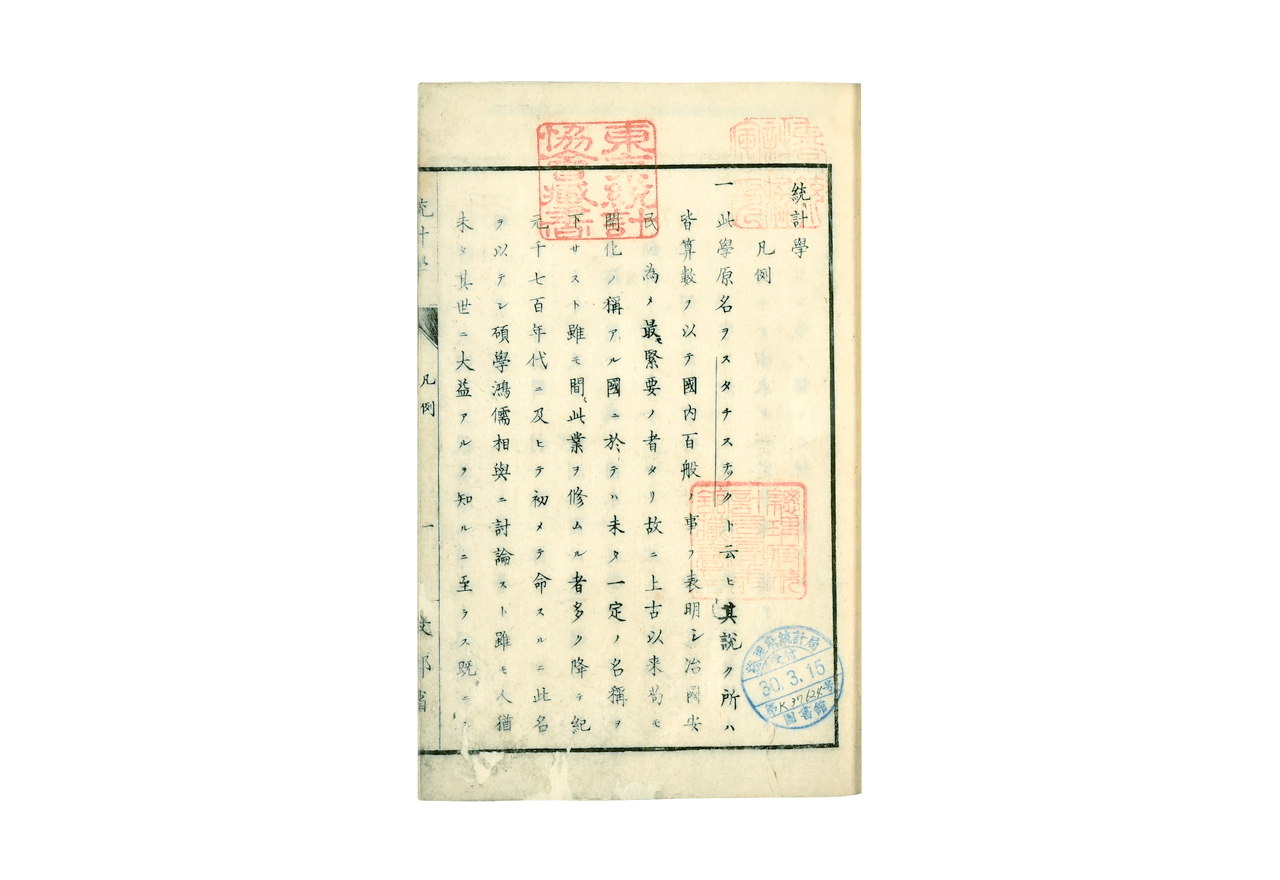 統計學
凡例
一此學原名ヲスタチスチックト云ヒ其說ク所ハ
皆算數ヲ以テ國內百般ノ事ヲ表明シ治國安
民ノ為メ最モ緊要ノ者タリ故ニ上古以来苟モ
開化ノ稱アル國ニ於テハ未タ一定ノ名稱ヲ
下サスト雖モ間〻此業ヲ修ムル者多ク降テ紀
元千七百年代ニ及ヒテ初メテ命スルニ此名
ヲ以テシ碩學鴻儒相與ニ討論スト雖モ人猶
未タ其世ニ大益アルヲ知ルニ至ラス既ニシ
統計學
凡例
一
文部省
東京統計
協會藏書
總理府統計局
30.3.15
第K37624号
圖書館